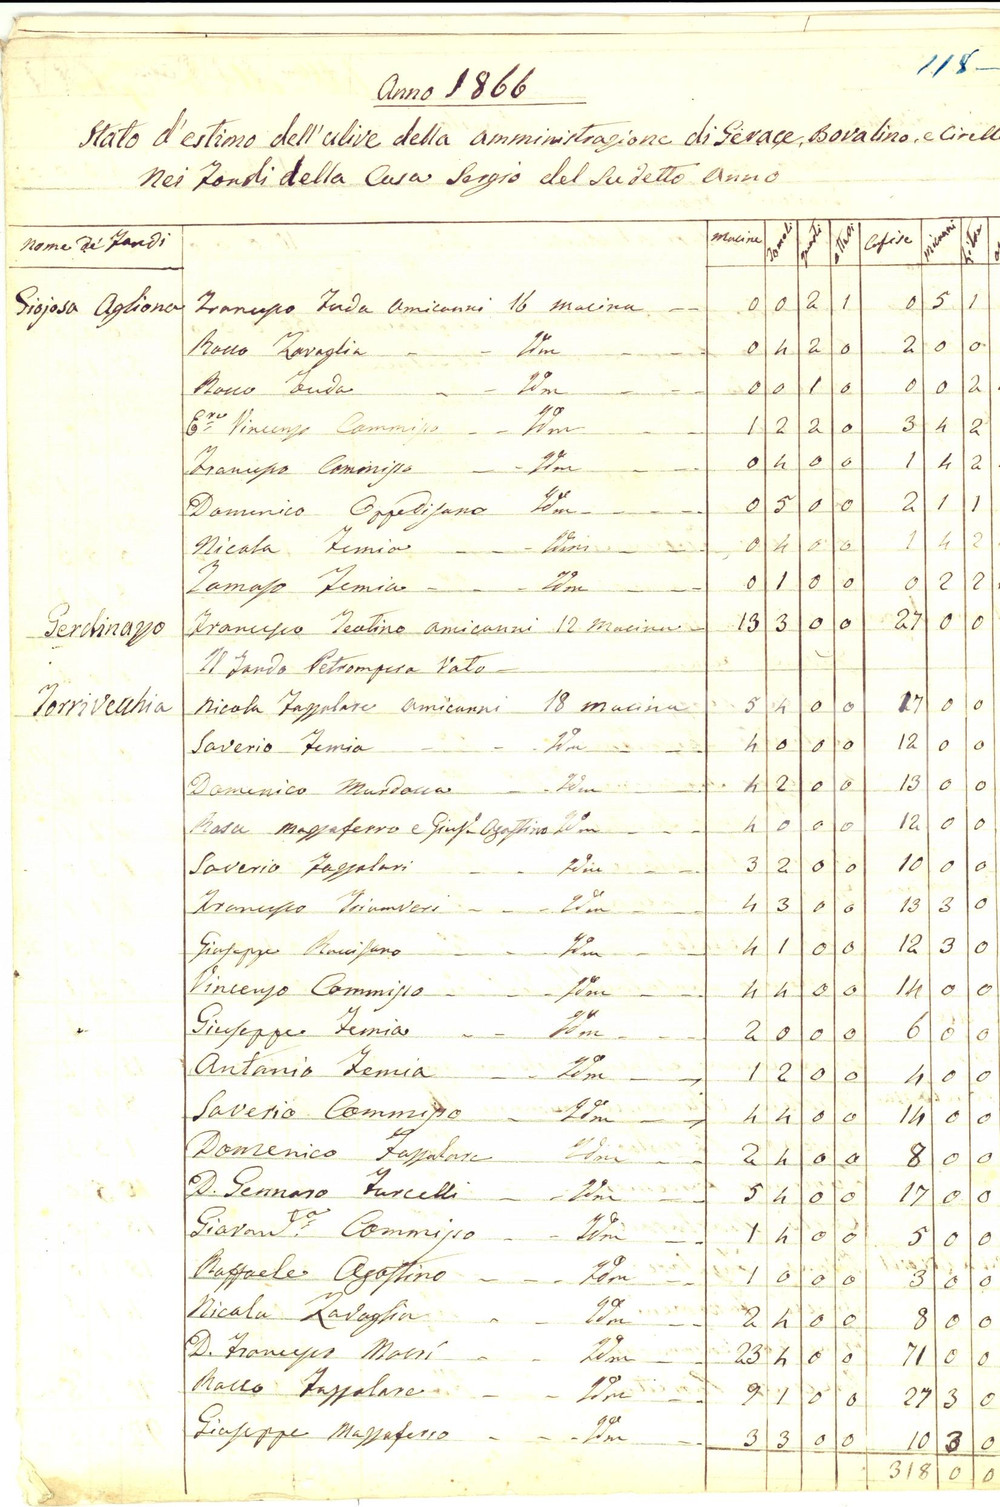 118 –
Anno 1866
Stato d'estimo dell'ulive della amministrazione di Gerace, Bovalino, e Cirell
Nei Fondi della Casa Sergio del sudetto Anno
Nome de' Fondi Macine Tomoli quarti Cafise misurri
Giojosa Agliona Francesco Fuda amicanni 16 macina 0 0 2 1 0 5 1
Rocco Zavaglia Idm 0 4 2 0 2 0 0
Rocco Fuda Idm 0 0 1 0 0 0 2
Vincenzo Commisso Idm 1 2 2 0 3 4 2
Francesco Commisso Idm 0 4 0 0 1 4 2
Domenico Oppedisano Idm 0 5 0 0 2 1 1
Nicola Femia Idm 0 4 0 0 1 4 2
Tomaso Femia Idm 0 1 0 0 0 2 2
Gerdinazzo Francesco Teotino amicanni 12 macina 13 3 0 0 27 0 0
Il Fondo Petrompera Vato
Torrivecchia Nicola Fazzolare amicanni 18 macina 5 4 0 0 17 0 0
Saverio Femia Idm 4 0 0 0 12 0 0
Domenico Murdocca Idm 4 2 0 0 13 0 0
Rosa Mazzaferro e Gius. Agostino Idm 4 0 0 0 12 0 0
Saverio Fazzolari Idm 3 2 0 0 10 0 0
Francesco Triumveri Idm 4 3 0 0 13 3 0
Giuseppe Roccisano Idm 4 1 0 0 12 3 0
Vincenzo Commisso Idm 4 4 0 0 14 0 0
Giuseppe Femia Idm 2 0 0 0 6 0 0
Antonio Femia Idm 1 2 0 0 4 0 0
Saverio Commisso Idm 4 4 0 0 14 0 0
Domenico Fazzolare Idm 2 4 0 0 8 0 0
D. Gennaro Furcelli Idm 5 4 0 0 17 0 0
Commisso Idm 1 4 0 0 5 0 0
Raffaele Agostino Idm 1 0 0 0 3 0 0
Nicola Zavaglia Idm 2 4 0 0 8 0 0
D. Francesco Macrí Idm 23 4 0 0 71 0 0
Rocco Fazzolare Idm 9 1 0 0 27 3 0
Giuseppe Mazzaferro Idm 3 3 0 0 10 3 0
318 0 0